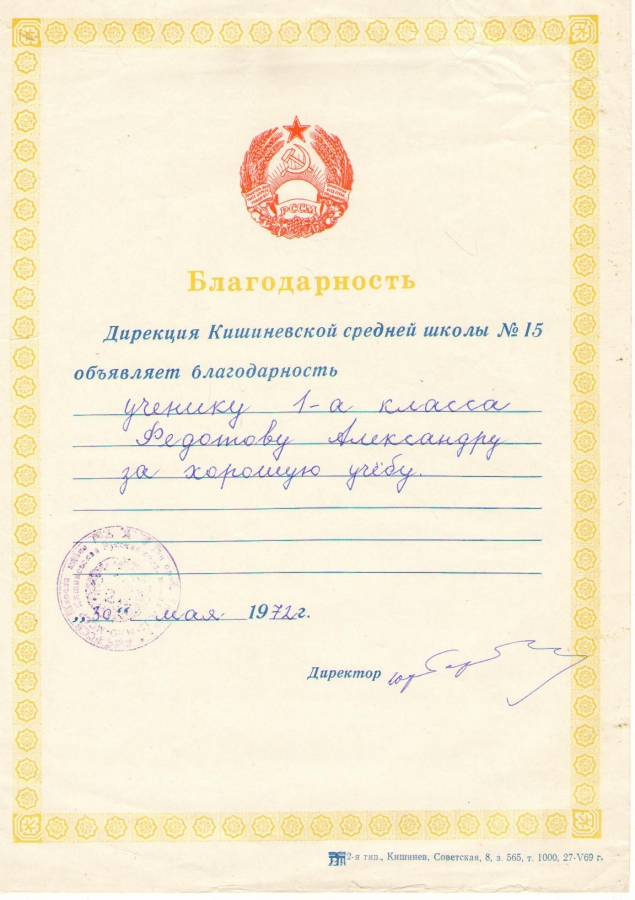 РССМ
Благодарность
Дирекция Кишиневской средней школы № 15
объявляет благодарность
ученику 1-а класса
Федотову Александру
за хорошую учёбу.
„30“ мая 1972 г.
Директор
2-я тип., Кишинев, Советская, 8, з. 565, т. 1000, 27-V69 г.